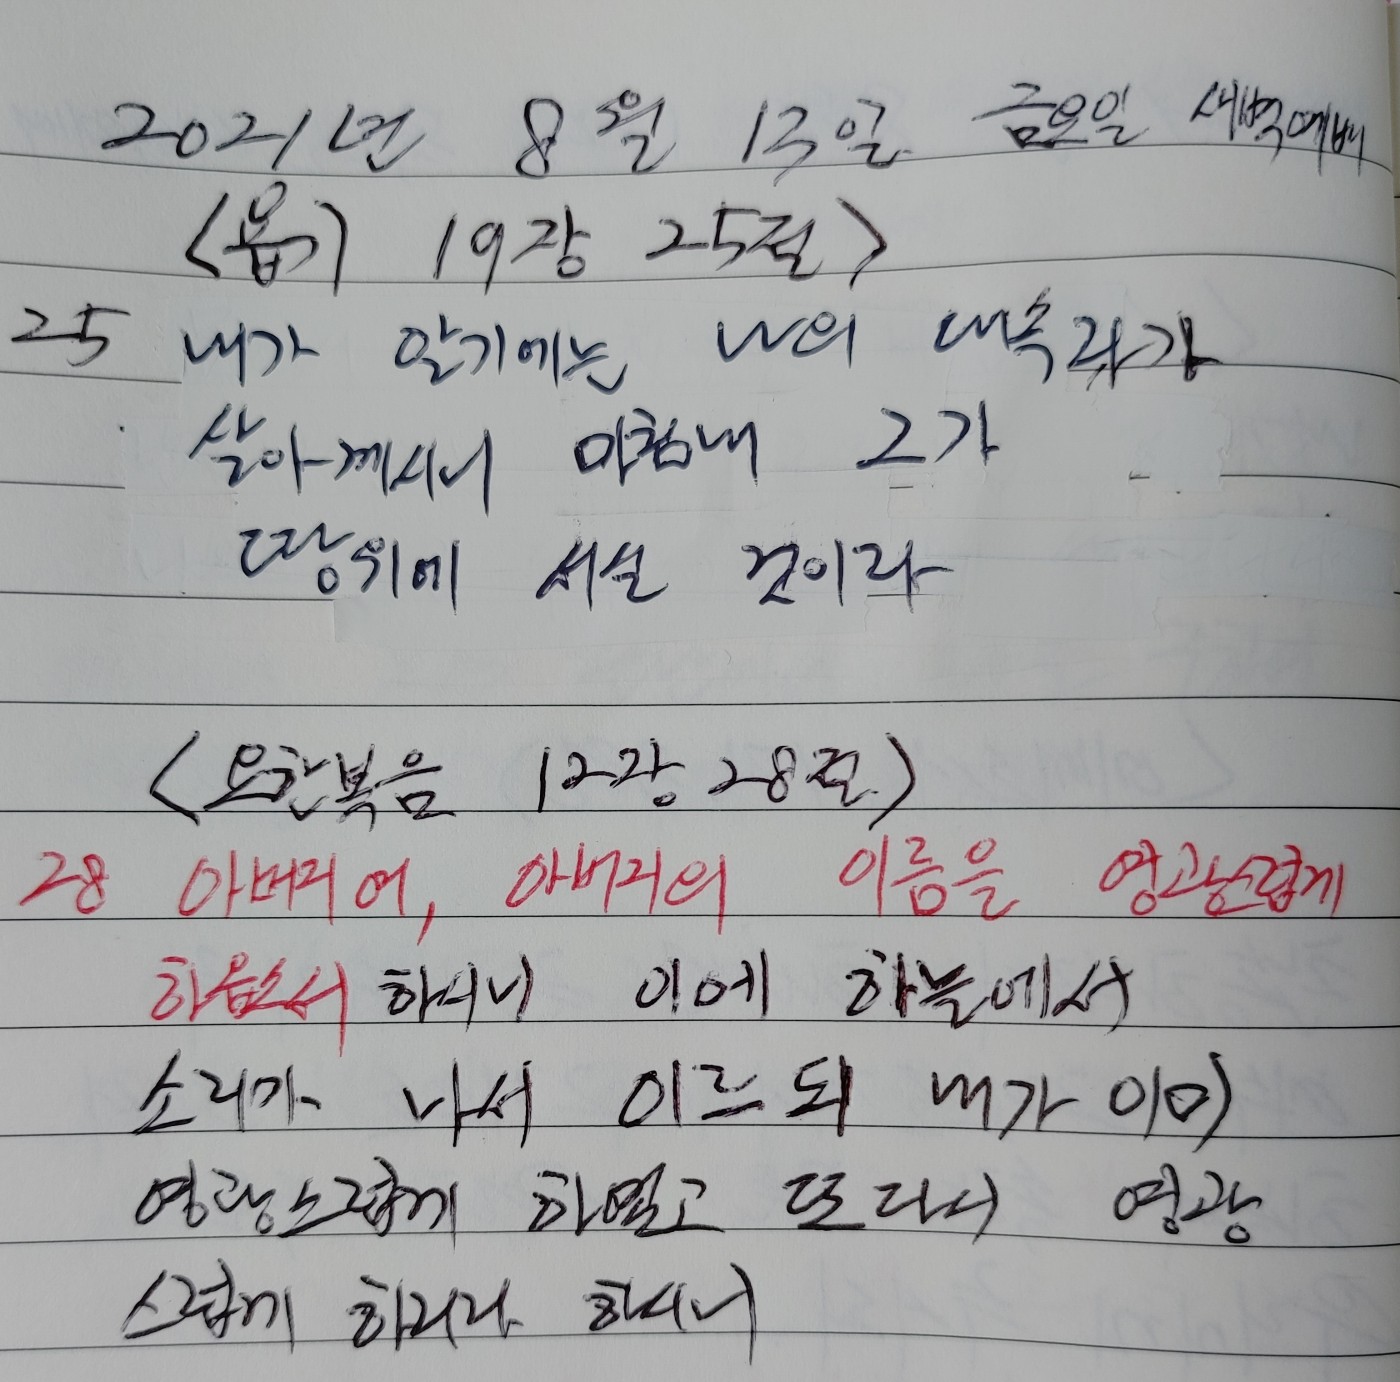 2021년 8월 13일 금요일 새벽예배
<욥기 19장 25절>
25 내가 알기에는 나의 대속자가
살아계시니 마침내 그가
땅위에 서실 것이라
<요한복음 12장 28절>
28 아버지여, 아버지의 이름을 영광스럽게
하옵소서 하시니 이에 하늘에서
소리가 나서 이르되 내가 이미
영광스럽게 하였고 또 다시 영광
스럽게 하리라 하시니